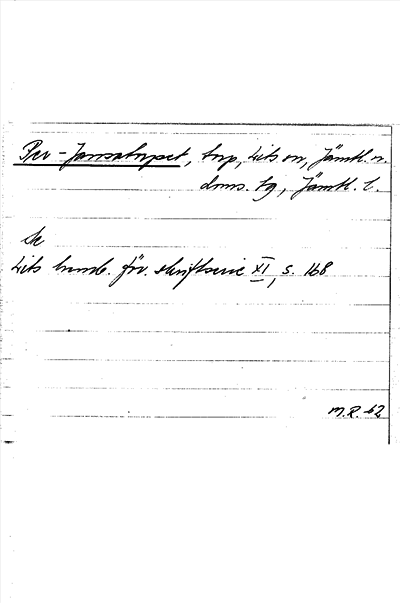 Per-Jansatorpet, torp, Lits sn, Jämtl. n.
doms. tg, Jämtl. l.
Se
Lits hemb. för. skriftserie XI, s. 168
M.R. 62